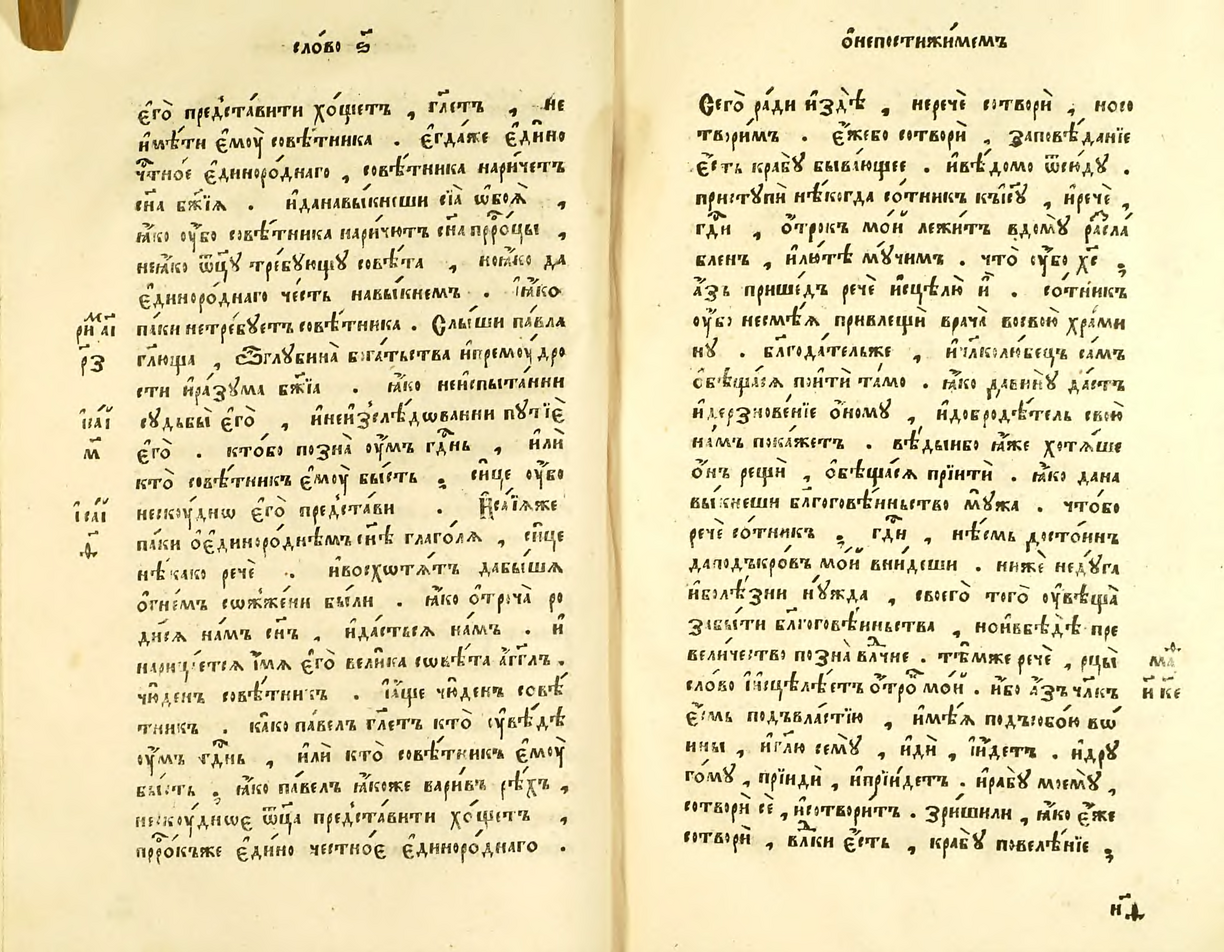 сло́во ѕ҃
є҆го̀ предста́вити хо́щетъ , гл҃етъ , не
и҆мѣ́ти є҆моу̀ совѣ́тника . є҆гда́же є҆ди́но
чт҃ное є҆диноро́днаго , совѣ́тника нарича́етъ
сн҃а бж҃їѧ . и҆данавы́кнеши сїѧ̀ ѡ҆боѧ̀ ,
ꙗ҆́ко оу҆́бо совѣ́тника нарича́ютъ сн҃а прⷪ҇ро́цы ,
неꙗ҆́ко ѿц҃ꙋ̀ тре́бꙋющꙋ совѣ́та , ноꙗ҆́ко да
є҆диноро́днаго че́сть навы́кнемъ . ꙗ҆́ко
па́ки нетре́бꙋетъ совѣ́тника . Слы́ши па́вла
гл҃юща , ѽглꙋбина̀ бога́тьства и҆премоу́дро
сти и҆ра́зꙋма бж҃їа . ꙗ҆́ко неиспыта́нни
сꙋдьбы̀ є҆го̀ , и҆неизслѣ́дѡванни пꙋтїѐ
є҆го̀ . кто́бо позна̀ оу҆́мъ гдⷭ҇нь , и҆лѝ
кто̀ совѣ́тникъ є҆моу̀ бы́сть ; си́це оу҆́бо
нескоу́днѡ є҆го̀ предста́ви . И҆са́їѧже
па́ки ѻ҆є҆диноро́днѣмъ сн҃ѣ глаго́лѧ , си́це
нѣ́како речѐ . и҆восхѡтѧ́тъ дабы́шѧ
ѻ҆гне́мъ сѡжже́ни бы́ли . ꙗ҆́ко ѻ҆троча̀ ро
ди́сѧ на́мъ сн҃ъ , и҆да́стьсѧ на́мъ . и҆
нарица́етсѧ и҆́мѧ є҆го̀ вели́ка сѡвѣ́та а҆́гг҃лъ .
чю́денъ совѣ́тникъ . а҆́ще чю́денъ совѣ́
тникъ . ка́ко па́велъ гл҃етъ кто̀ оу҆вѣ́дѣ
оу҆́мъ гдⷭ҇нь , и҆лѝ кто̀ совѣ́тникъ є҆моу̀
бы́сть ; ꙗ҆́ко па́велъ ꙗ҆́коже вари́въ рѣ́хъ ,
нескоу́дное ѿц҃а предста́вити хо́щетъ ,
прⷪ҇ро́къже є҆ди́но че́стноє є҆диноро́днаго .
ри аі
рз
м
ѻ҆непостижи́мемъ
Сего̀ ра́ди и҆здѣ̀ , неречѐ сотворѝ , носо
твори́мъ . є҆́жебо сотворѝ , заповѣ́данїе
є҆́сть крабꙋ̀ быва́ющее . и҆вѣ́домо ѿсю́дꙋ .
пристꙋпѝ нѣ́когда со́тникъ къі҆сꙋ̀ , и҆речѐ ,
гдⷭ҇и , ѻ҆́трокъ мо́й лежи́тъ вдомꙋ̀ ра́сла
бленъ , и҆лю́тѣ мꙋ́чимъ . что̀ оу҆́бо хс҃ ;
а҆́зъ прише́дъ речѐ и҆сцѣлю̀ и҆̀ . со́тникъ
оу҆́бо несмѣ́ѧ привлещѝ врача̀ восвою̀ хра́ми
нꙋ . благода́тельже , и҆чл҃колю́бецъ са́мъ
ѻ҆бѣща́сѧ пойтѝ та́мо . ꙗ҆́ко давинꙋ̀ да́стъ
и҆дерзнове́нїе ѻ҆́номꙋ , и҆добродѣ́тель свою̀
на́мъ пока́жетъ . вѣ́дыибо ꙗ҆́же хотѧ́ше
ѻ҆́нъ рещѝ , ѻ҆бѣща́сѧ прїитѝ . ꙗ҆́ко дана
вы́кнеши благоговѣ́иньство мꙋ́жа . что́бо
речѐ со́тникъ ; гдⷭ҇и , нѣ́смь досто́инъ
дапо́дъкро́въ мо́й вни́деши . ниже́ недꙋ́га
и҆болѣ́зни нꙋ́жда , своего̀ того̀ оу҆вѣща̀
забы́ти благоговѣ́иньства , нои҆вбѣдѣ̀ пре
вели́чество позна̀ влⷣчне . тѣ́мже речѐ , рцы̀
сло́во и҆и҆сцѣлѣ́етъ ѻ҆́тро́ мо́й . и҆́бо а҆́зъ чл҃къ
є҆́смь подъвла́стїю , и҆мѣ́ѧ подъсобо́ю вѡ
ины , и҆гл҃ю семꙋ̀ , и҆дѝ , и҆и҆́детъ . и҆дрꙋ
го́мꙋ , прїидѝ , и҆прїи́детъ . и҆рабꙋ̀ моемꙋ̀ ,
сотворѝ сѐ , и҆сотвори́тъ . зри́шили , ꙗ҆́ко є҆́же
сотворѝ , влⷣки є҆́сть , крабꙋ̀ повелѣ́нїе ;
и҆ ке